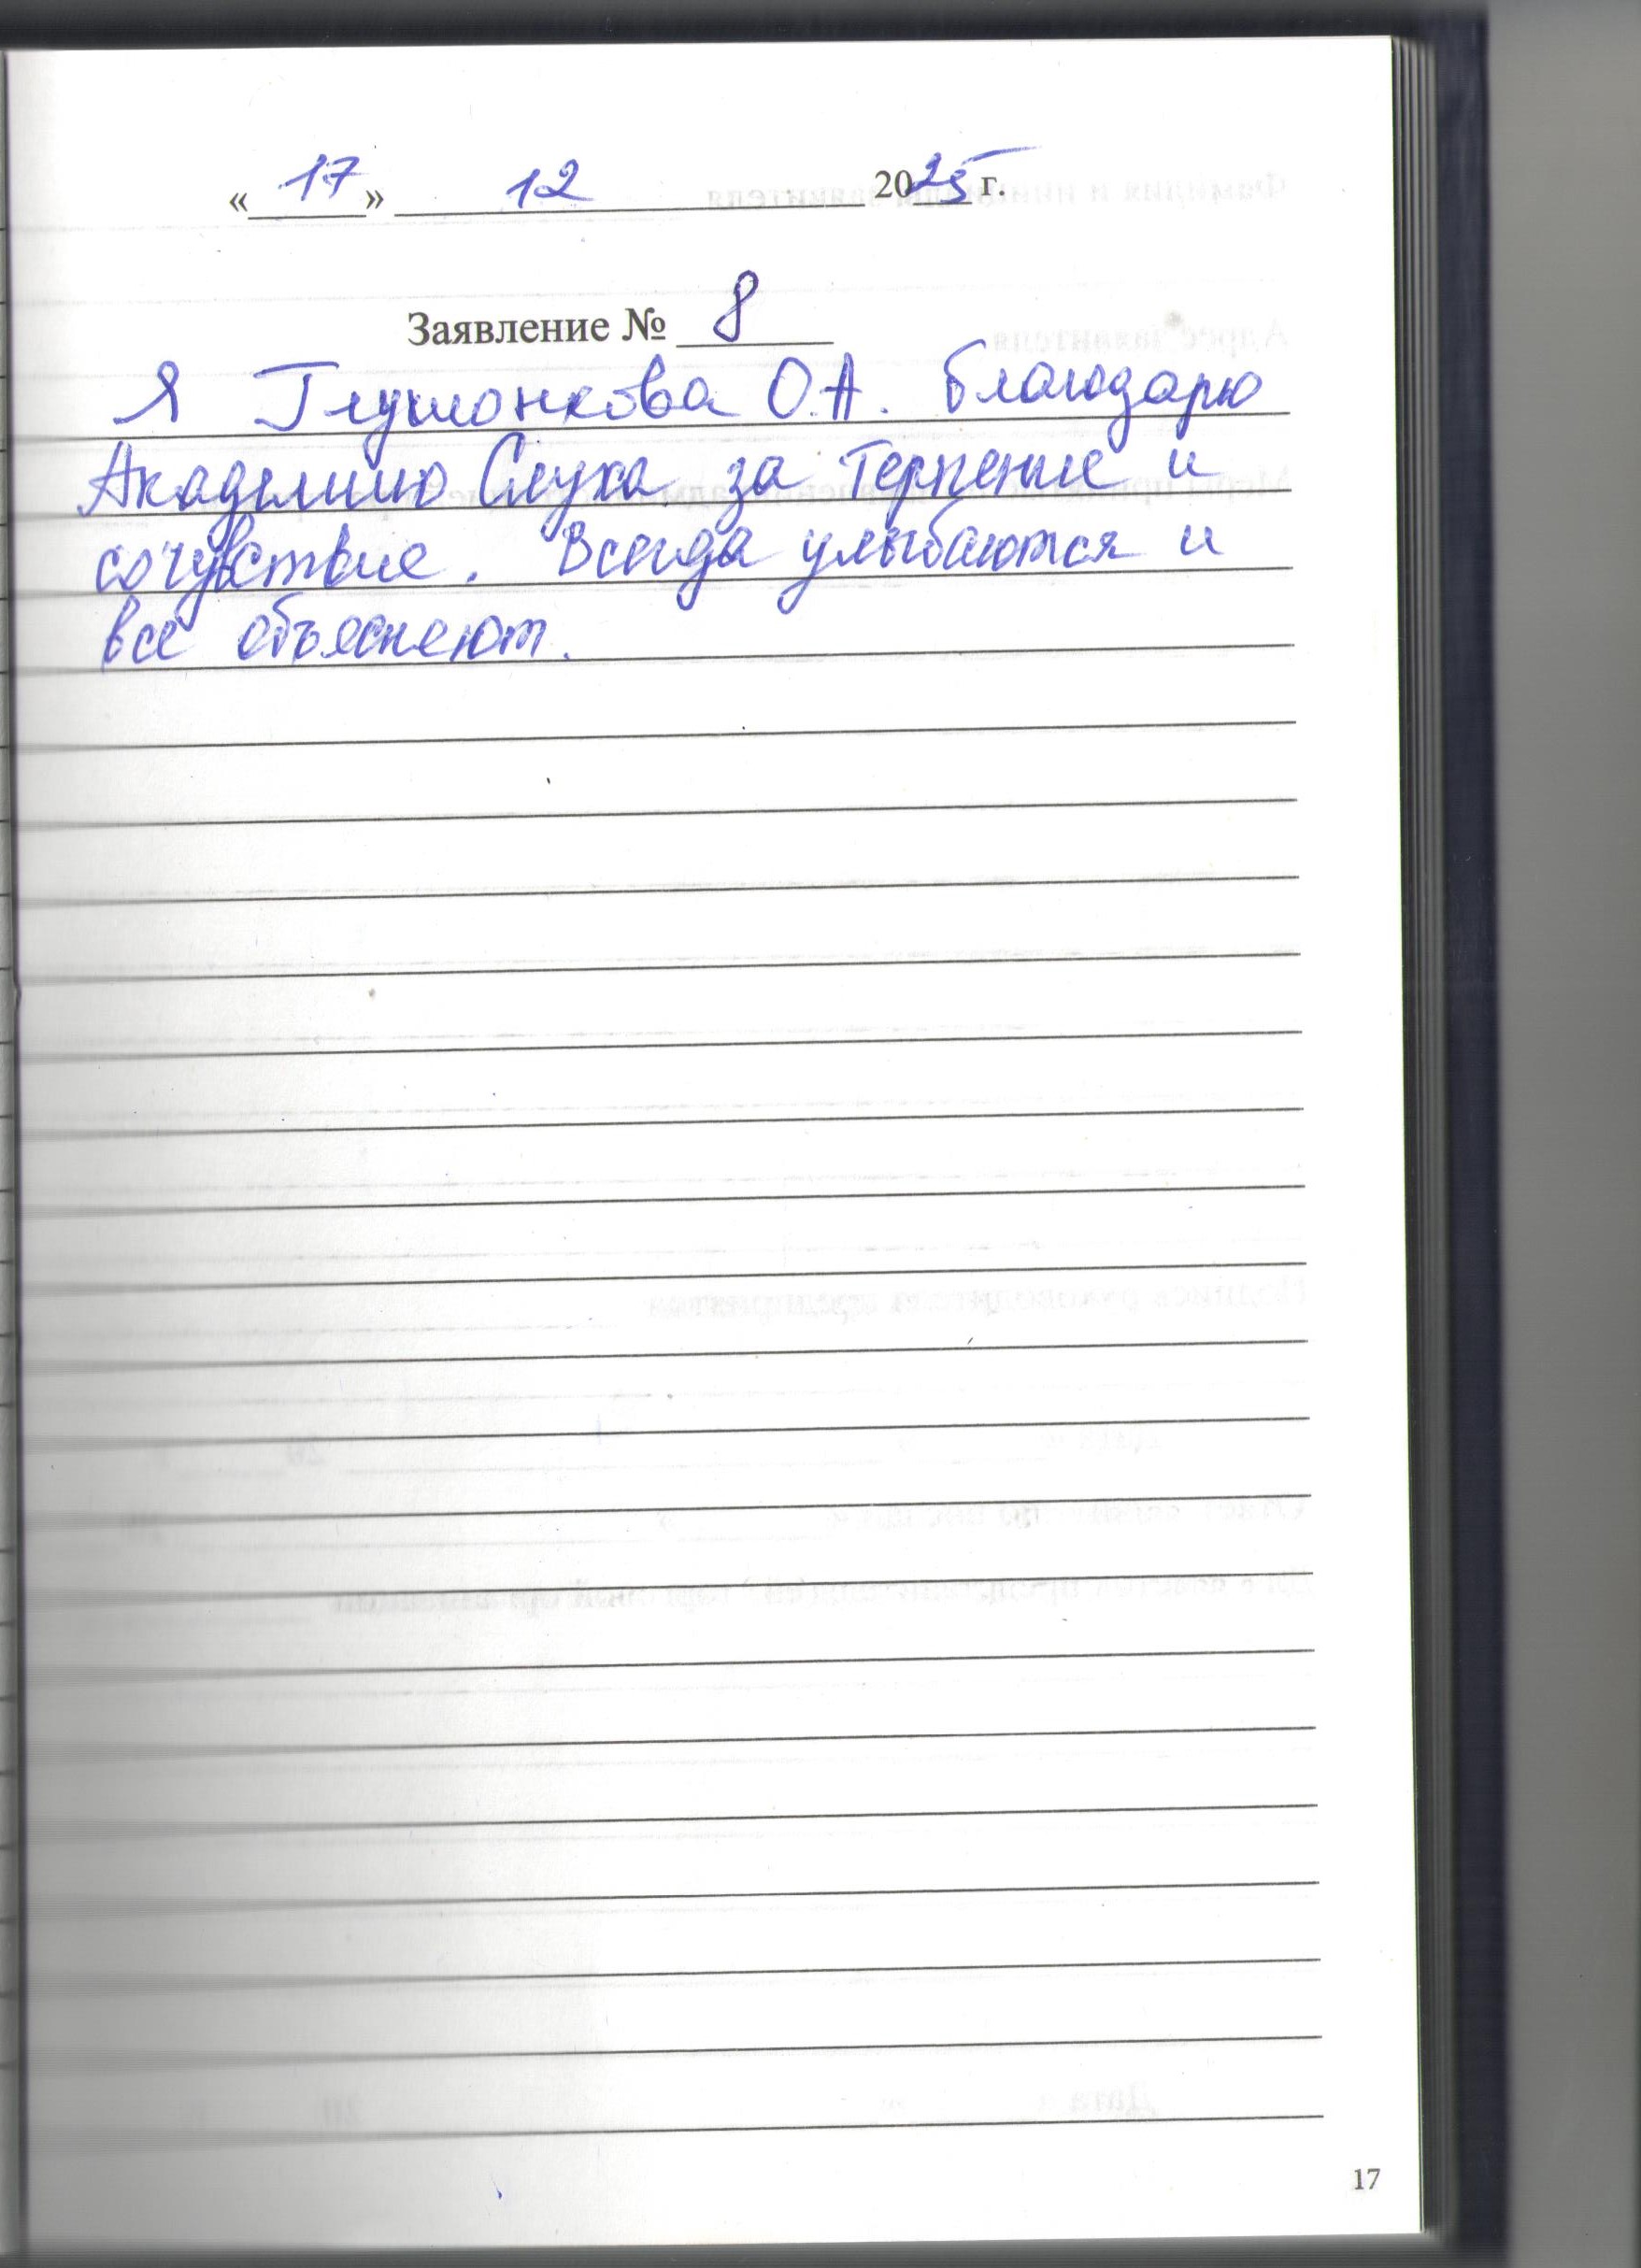 « 17 » 12 2025 г.
Заявление № 8
Я Глушонкова О.А. благодарю
Академию Слуха за терпение и
сочувствие. Всегда улыбаются и
все объясняют.
17